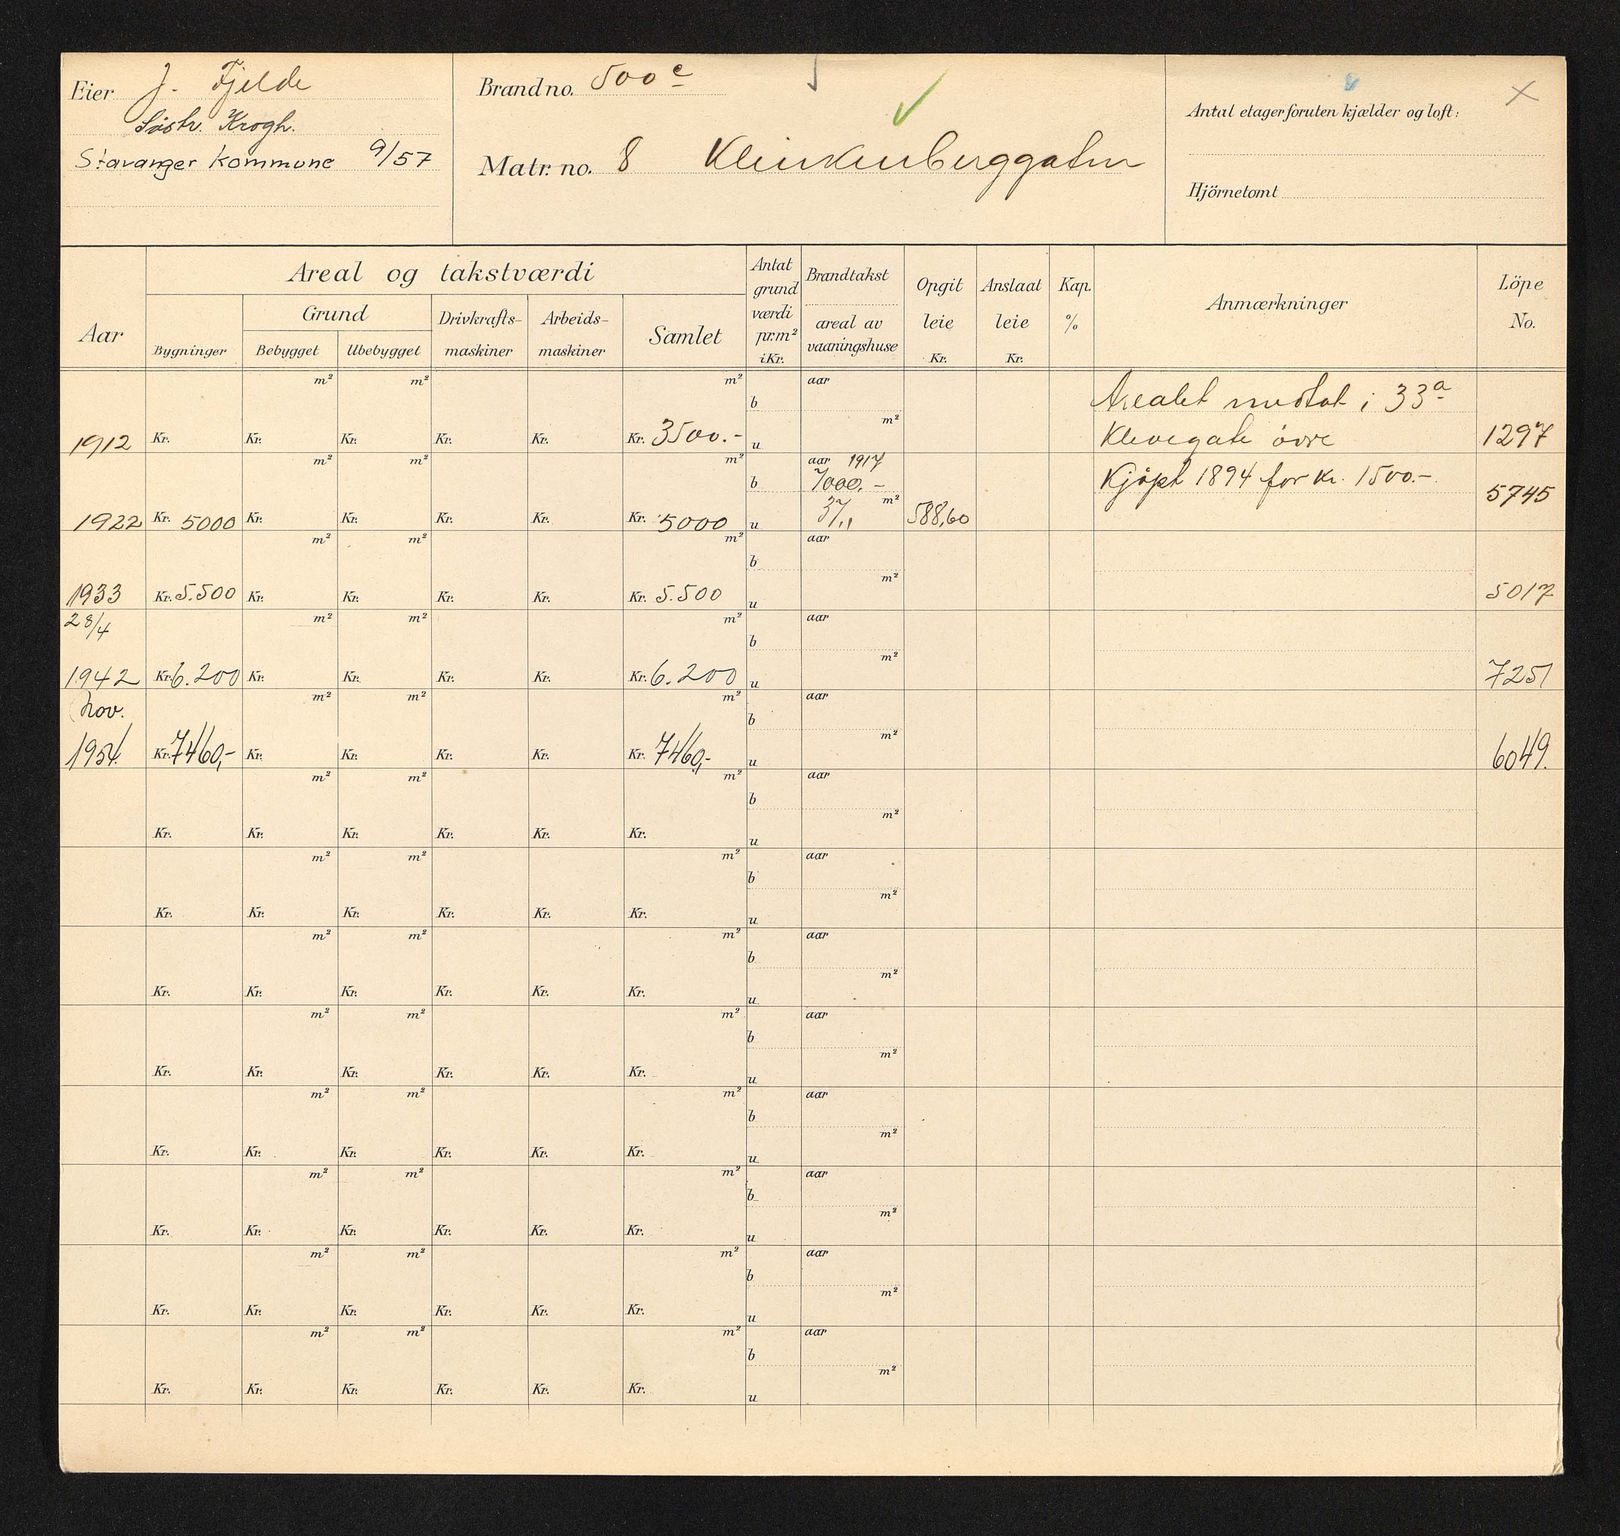 Eier J. Fjelde
Søstr. Krogh.
Stavanger Kommune 9/57
Brand no. 500 c
Matr. no. 8 Klinkenberggaten
Antal etager foruten kjælder og loft:
Hjörnetomt
Aar
Areal og takstværdi
Grund
Bygninger
Bebygget
Ubebygget
Drivkrafts-
maskiner
Arbeids-
maskiner
Samlet
Antat
grund
værdi
pr. m²
i Kr.
Brandtakst
areal av
vaaningshuse
Opgit
leie
Kr.
Anslaat
leie
Kr.
Kap.
%
Anmærkninger
Löpe
No.
m² m² m² aar Arealet medtat i 33a
b
m²
1912 Kr. Kr. Kr. Kr. Kr. Kr. 3500.- u Klevegate övre 1297
m² m² m² aar 1917
b 7000.- Kjøpt 1894 for kr. 1500.-
m² 5745
1922 Kr. 5000 Kr. Kr. Kr. Kr. Kr. 5000 u 37,, 588,60
m² m² m² aar
b
m²
1933 Kr. 5.500 Kr. Kr. Kr. Kr. Kr. 5.500 u 5017
28/4 m² m² m² aar
b
m²
1942 Kr. 6.200 Kr. Kr. Kr. Kr. Kr. 6.200 u 7251
Nov. m² m² m² aar
b
m²
1954 Kr. 7460,- Kr. Kr. Kr. Kr. Kr. 7460,- u 6049.
m² m² m² aar
b
m²
Kr. Kr. Kr. Kr. Kr. Kr. u
m² m² m² aar
b
m²
Kr. Kr. Kr. Kr. Kr. Kr. u
m² m² m² aar
b
m²
Kr. Kr. Kr. Kr. Kr. Kr. u
m² m² m² aar
b
m²
Kr. Kr. Kr. Kr. Kr. Kr. u
m² m² m² aar
b
m²
Kr. Kr. Kr. Kr. Kr. Kr. u
m² m² m² aar
b
m²
Kr. Kr. Kr. Kr. Kr. Kr. u
m² m² m² aar
b
m²
Kr. Kr. Kr. Kr. Kr. Kr. u
m² m² m² aar
b
m²
Kr. Kr. Kr. Kr. Kr. Kr. u